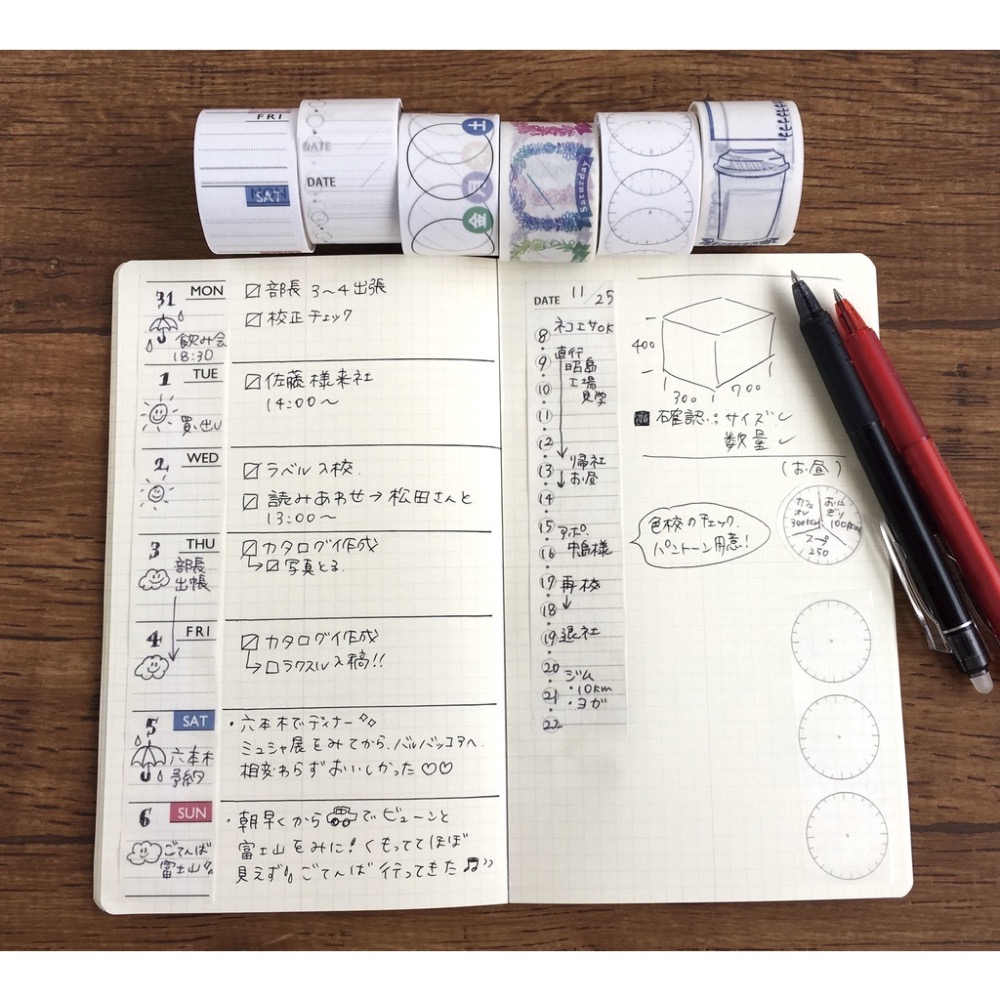 FRI
SAT
DATE
DATE
土
金
Saturday
31 MON
飲み会
18:30
☑ 部長 3〜4出張
☑ 校正チェック
1 TUE
買い出し
☑ 佐藤様来社
14:00〜
2 WED
☑ ラベル入校
☑ 読みあわせ→松田さんと
13:00〜
3 THU
部長
出帳
☑ カタログイ作成
↳☐ 写真とる
4 FRI
☑ カタログイ作成
↳☐ ラクスル入稿!!
5 SAT
六本木
予約
・六本木でディナー
ミュシャ展をみてから、バルバッコアへ
相変わらずおいしかった♡♡
6 SUN
ごてんば
富士山
・朝早くから でビューンと
富士山をみに!くもっててほぼ
見えず ごてんば行ってきた♫
DATE 11/25
8 ネコエサOK
9 直行
昭島
10 工場
見学
11
12
13 帰社
お昼
14
15 アポ
16 中島様
17 再校
18
19 退社
20 ジム
・10km
21 ・ヨガ
22
400
300
700
確認:サイズ✓
数量✓
(お昼)
色校のチェック、
パントーン用意!
カフェ
オレ
300kcal
おに
ぎり
100kcal
スープ
250